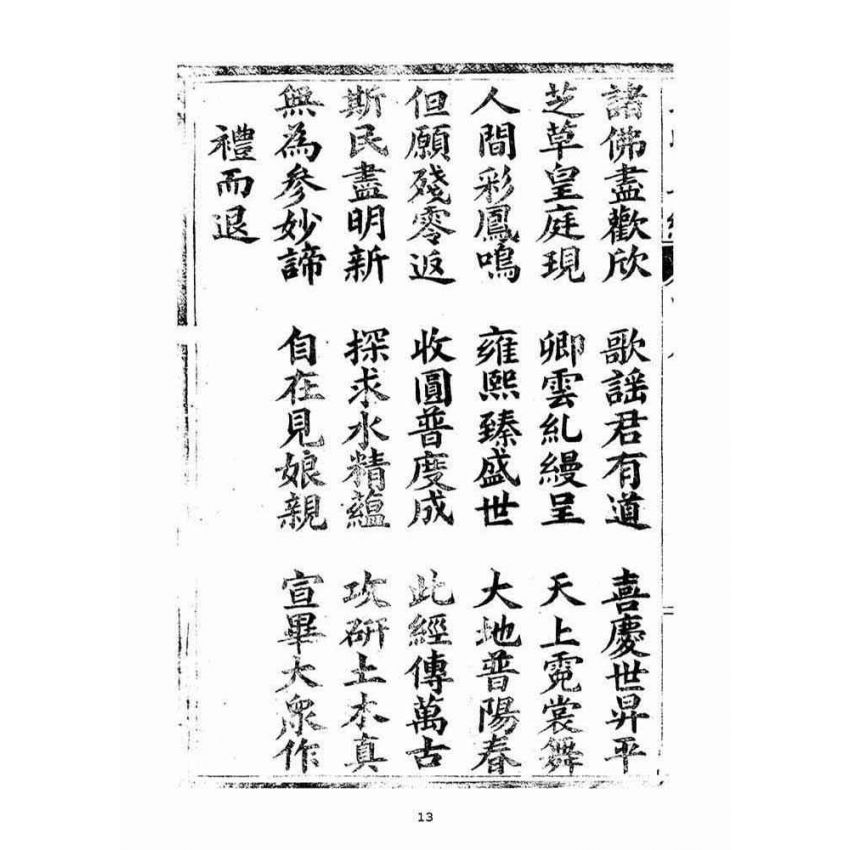 諸佛盡歡欣 歌謡君有道 喜慶世昇平
芝草皇庭現 卿雲糺縵呈 天上霓裳舞
人間彩鳳鳴 雍熙臻盛世 大地普陽春
但願殘零返 收圓普度成 此經傳萬古
斯民盡明新 探求水精蘊 攻研土木真
無為參妙諦 自在見娘親 宣畢大眾作
禮而退
13